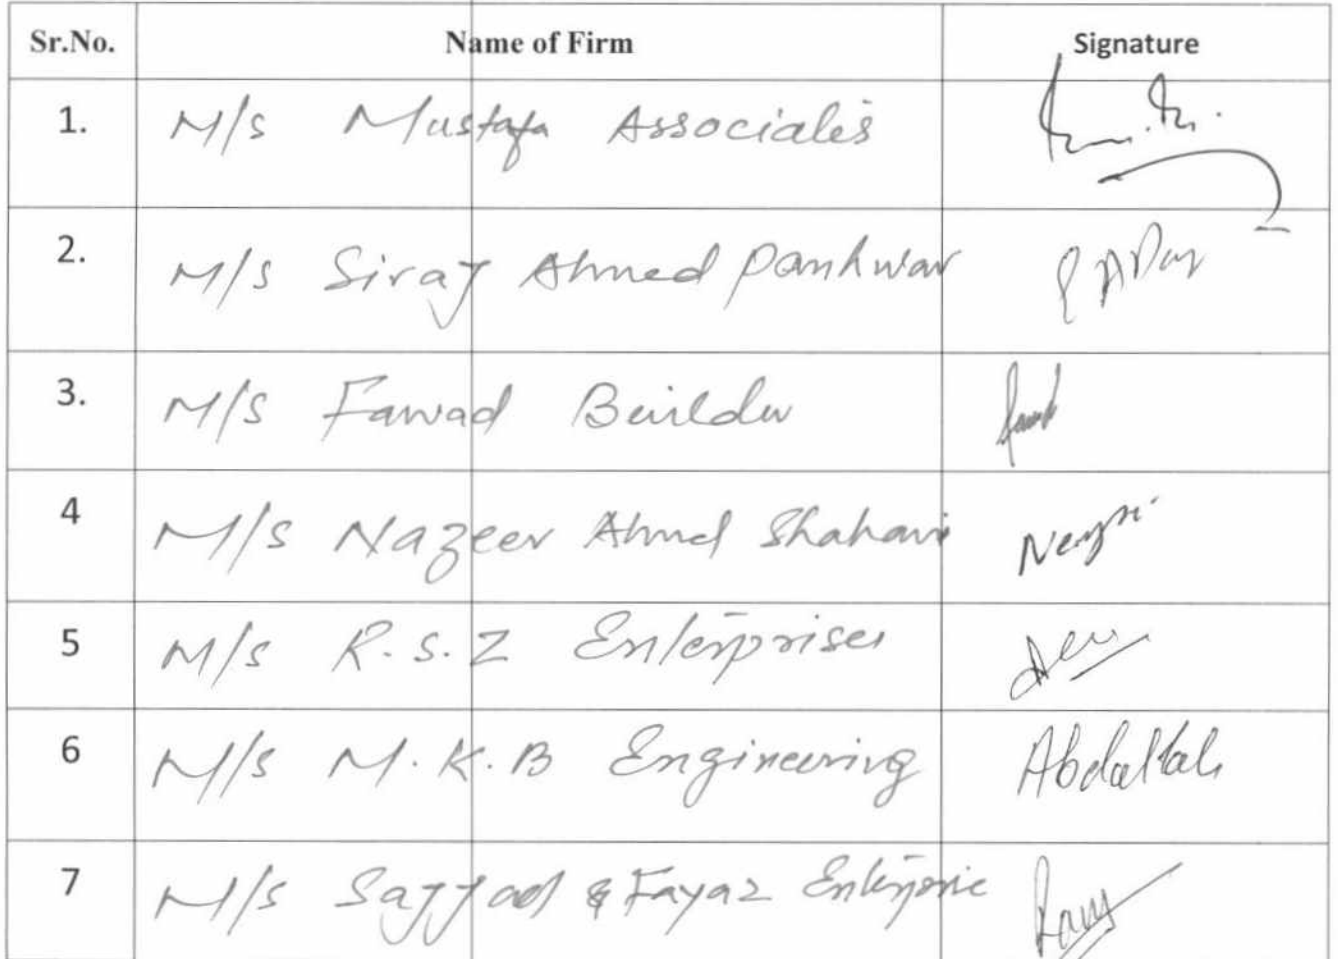 Sr.No. Name of Firm Signature
1. M/s Mustafa Associates
2. M/s Siraj Ahmed Panhwar
3. M/s Fawad Builder
4 M/s Nazeer Ahmed Shahani
5 M/s R.S.Z Enterprises
6 M/s M.K.B Engineering Abdallah
7 M/s Sajjad & Fayaz Enterprise